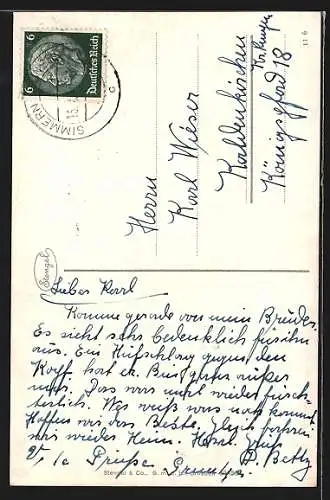 6 Deutsches Reich 6
SIMMERN
Herrn
Karl Wieser
Kaldenkirchen
Königspfad 18
11 6
Stengel
Lieber Karl
Komme gerade von mein Bruder.
Es sieht sehr bedenklich für ihn
aus. Ein Hufschlag gegen den
Kopf hat er. Bin ganz außer
mir. Das war mal wieder fürch-
terlich. Wer weiß was noch kommt
Hoffen wir das Beste. Gleich
wir wieder Heim. Herzl. Gruß
D. Betty
Stengel & Co., G. m. b. H., Dresden